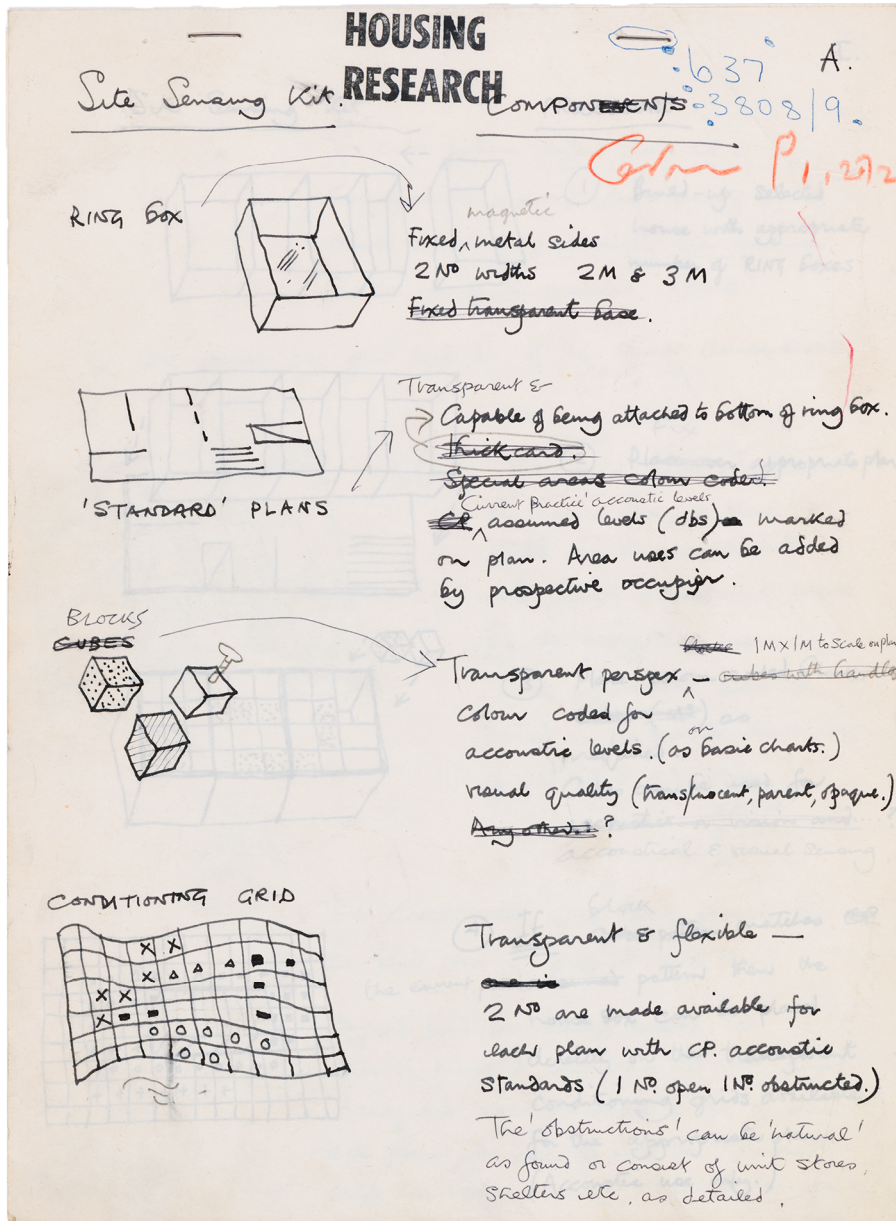 HOUSING
RESEARCH
A.
637
3808/9.
Site Sensing Kit.
COMPONENTS
P1,2,2
RING BOX
magnetic
Fixed ^ metal sides
2 No widths 2M & 3M
Fixed transparent base.
Transparent &
Capable of being attached to bottom of ring box.
thick card.
Special areas colour coded.
'STANDARD' PLANS
'Current Practice' accoustic levels
CP ^ assumed levels (dbs) marked
on plan. Area uses can be added
by prospective occupier.
BLOCKS
CUBES
blocks 1M X 1M to scale on plan
Transparent perspex ^ – cubes with handles
colour coded for
on
accoustic levels. (as basic charts.)
visual quality (translucent, parent, opaque.)
Any other...?
CONDITIONING GRID
Transparent & flexible —
2 No are made available for
each plan with CP. accoustic
standards (1 No. open 1 No. obstructed.)
The 'obstructions' can be 'natural'
as found or consist of unit stores,
shelters etc, as detailed.